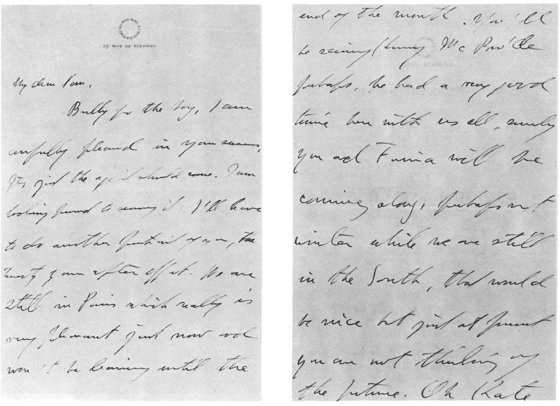 27 RUE DE FLEURUS
My dear Van,
Bully for the boy, I am
awfully pleased in your success,
It's just the age it should come. I am
looking forward to seeing it. I'll have
to do another portrait of you, the
twenty years after effect. We are
still in Paris which really is
very pleasant just now and
won't be leaving until the
end of the month. You'll
be seeing McBride
perhaps, he had a very good
time here with us all, surely
you and Fania will be
coming along, perhaps next
winter while we are still
in the South, that would
be nice but just at present
you are not thinking of
the future. Oh Kate